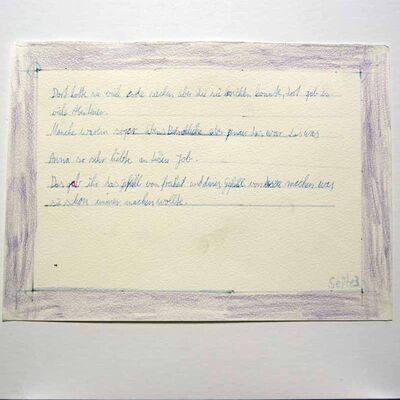 Dort hatte sie viele sachen aber die sie machen konnte, dort gab es
viele Abenteuer.
Manche warden sogar aber genau das war das was
Anna so sehr liebte an ihren Job.
Das gab ihr das gefühl von freiheit und dieses Gefühl von machen was
sie schon immer machen wollte.
Seite3